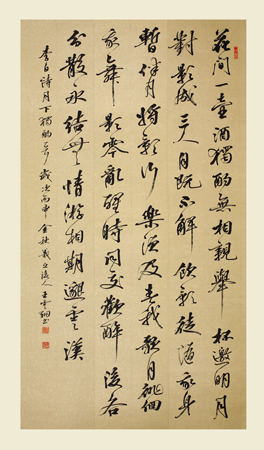 花間一壺酒獨酌無相親舉杯邀明月
對影成三人月既不解飲影徒隨我身
暫伴月將影行樂須及春我歌月徘徊
我舞影零亂醒時同交歡醉後各
分散永結無情游相期邈雲漢
李白詩月下獨酌 歲次丙申金秋 人王書